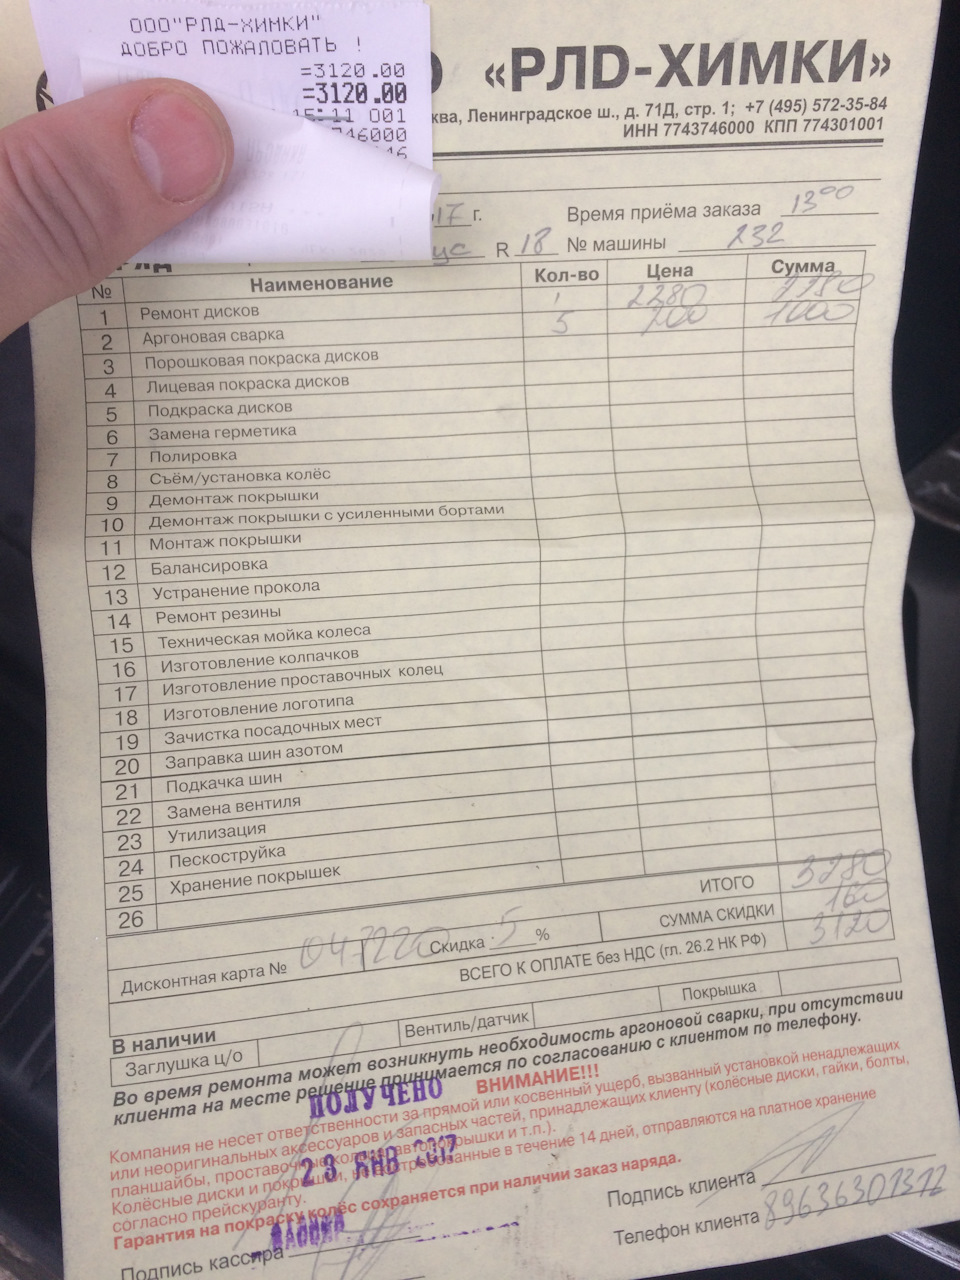 ООО"РЛД-ХИМКИ"
ДОБРО ПОЖАЛОВАТЬ !
=3120.00
=3120.00
15:11 001
746000
46
О «РЛD-ХИМКИ»
ква, Ленинградское ш., д. 71Д, стр. 1; +7 (495) 572-35-84
ИНН 7743746000 КПП 774301001
17 г. Время приёма заказа 13 00
ус R 18 № машины 232
РЯД
№ Наименование Кол-во Цена Сумма
1 Ремонт дисков 1 2280 2280
2 Аргоновая сварка 5 200 1000
3 Порошковая покраска дисков
4 Лицевая покраска дисков
5 Подкраска дисков
6 Замена герметика
7 Полировка
8 Съём/установка колёс
9 Демонтаж покрышки
10 Демонтаж покрышки с усиленными бортами
11 Монтаж покрышки
12 Балансировка
13 Устранение прокола
14 Ремонт резины
15 Техническая мойка колеса
16 Изготовление колпачков
17 Изготовление проставочных колец
18 Изготовление логотипа
19 Зачистка посадочных мест
20 Заправка шин азотом
21 Подкачка шин
22 Замена вентиля
23 Утилизация
24 Пескоструйка
25 Хранение покрышек
26
ИТОГО 3280
СУММА СКИДКИ 160
Дисконтная карта № 047220 Скидка 5 %
ВСЕГО К ОПЛАТЕ без НДС (гл. 26.2 НК РФ) 3120
В наличии
Заглушка ц/о Вентиль/датчик Покрышка
Во время ремонта может возникнуть необходимость аргоновой сварки, при отсутствии
клиента на месте решение принимается по согласованию с клиентом по телефону.
ПОЛУЧЕНО
ВНИМАНИЕ!!!
Компания не несет ответственности за прямой или косвенный ущерб, вызванный установкой ненадлежащих
или неоригинальных аксессуаров и запасных частей, принадлежащих клиенту (колёсные диски, гайки, болты,
планшайбы, проставочные кольца, автопокрышки и т.п.).
Колёсные диски и покрышки, не востребованные в течение 14 дней, отправляются на платное хранение
согласно прейскуранту.
23 ЯНВ 2017
Гарантия на покраску колёс сохраняется при наличии заказ наряда.
Подпись клиента
Подпись кассира
Телефон клиента 89636301312